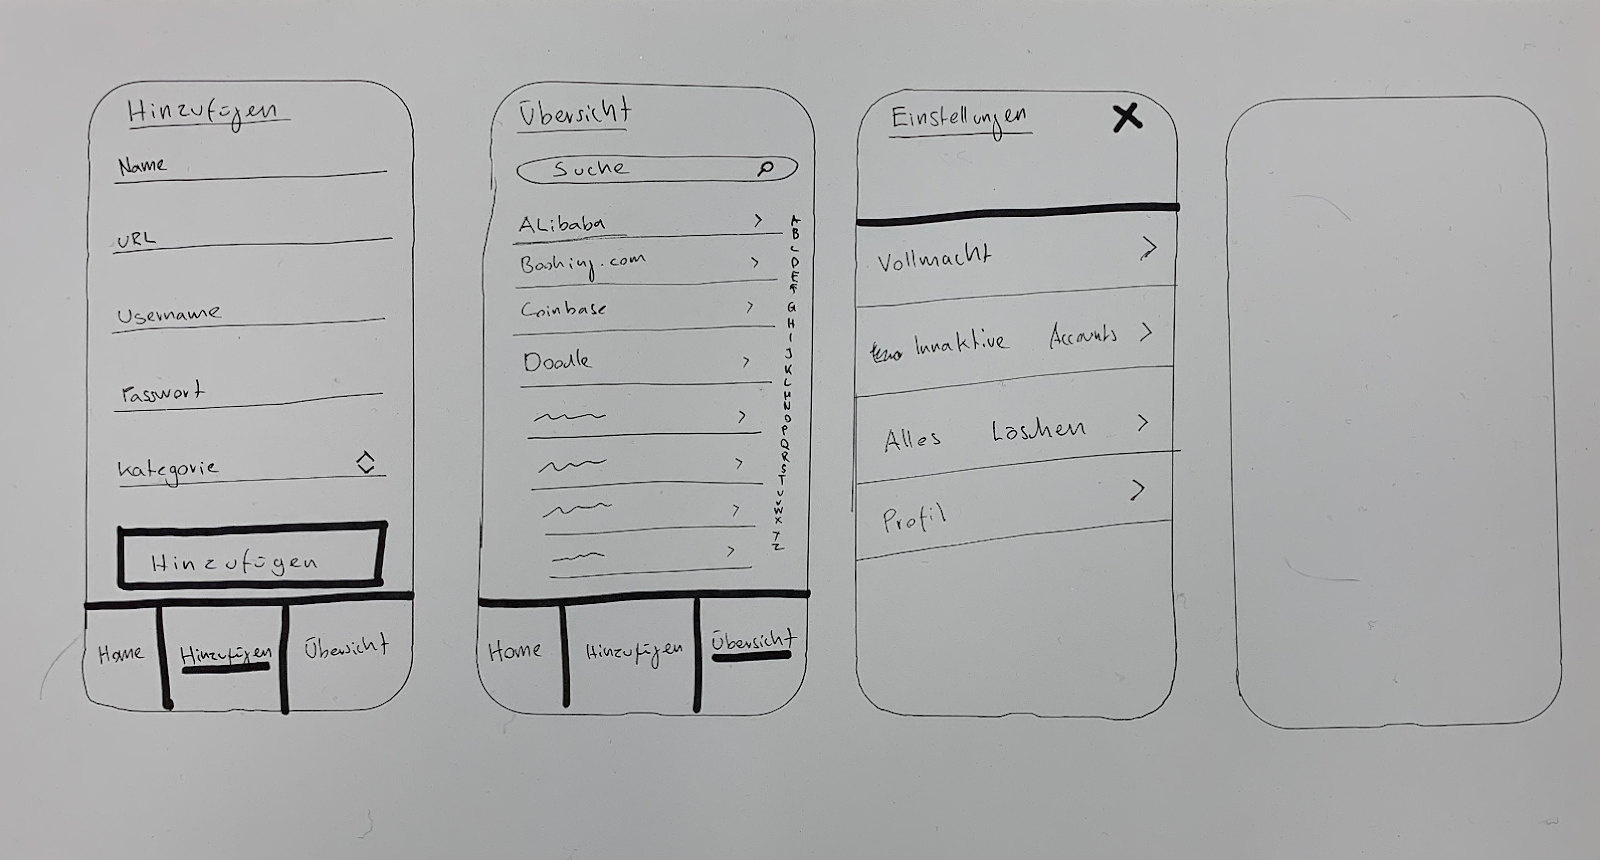 Hinzufügen
Name
URL
Username
Passwort
Kategorie
Hinzufügen
Home Hinzufügen Übersicht
Übersicht
Suche
ALibaba
Booking.com
Coinbase
Doodle
A
B
C
D
E
F
G
H
I
J
K
L
M
N
O
P
Q
R
S
T
U
V
W
X
Y
Z
Home Hinzufügen Übersicht
Einstellungen X
Vollmacht
Innaktive Accounts
Alles Löschen
Profil